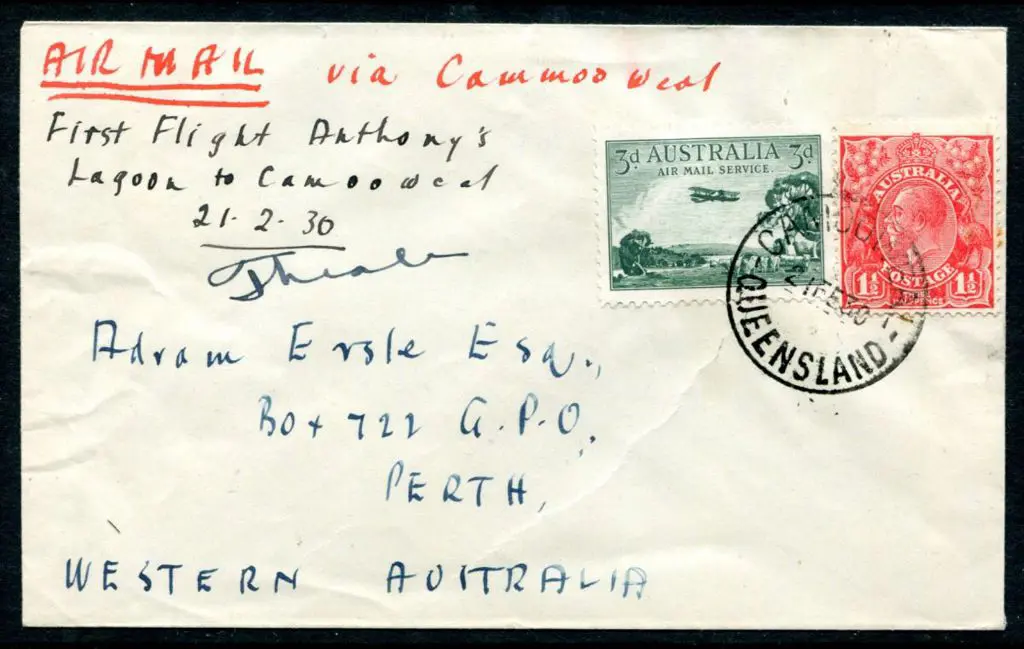 AIR MAIL via Cammooweal
First Flight Anthony's
Lagoon to Camooweal
21-2-30
3d AUSTRALIA 3d
AIR MAIL SERVICE.
AUSTRALIA
POSTAGE
1½ 1½
21FE30
QUEENSLAND
Adram Ersle Esq.,
Box 722 G.P.O.
PERTH,
WESTERN AUSTRALIA